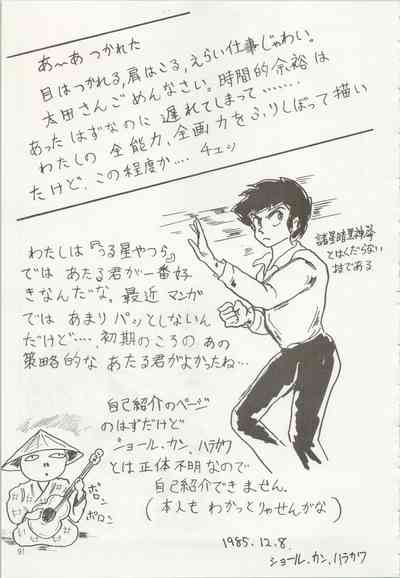 あ〜あ つかれた
目はつかれる,肩はこる,えらい仕事じゃわい。
太田さんごめんなさい。時間的余裕は
あったはずなのに遅れてしまって‥‥‥‥
わたしの全能力、全画力をふりしぼって描い
たけど、この程度か‥‥ チェッ
わたしは『うる星やつら』
では あたる君が一番好
きなんだな。最近 マンガ
では あまり パッとしないん
だけど‥‥初期のころの あの
策略的な あたる君がよかったね…
諸星暗黒神拳
とはくだらない
技である
自己紹介のページ
のはずだけど
ショール.カン.ハラカワ
とは正体不明なので
自己紹介できません。
(本人も わかっとりゃせんがな)
ボロン
ボロン
1985.12.8.
ショール.カン.ハラカワ
91